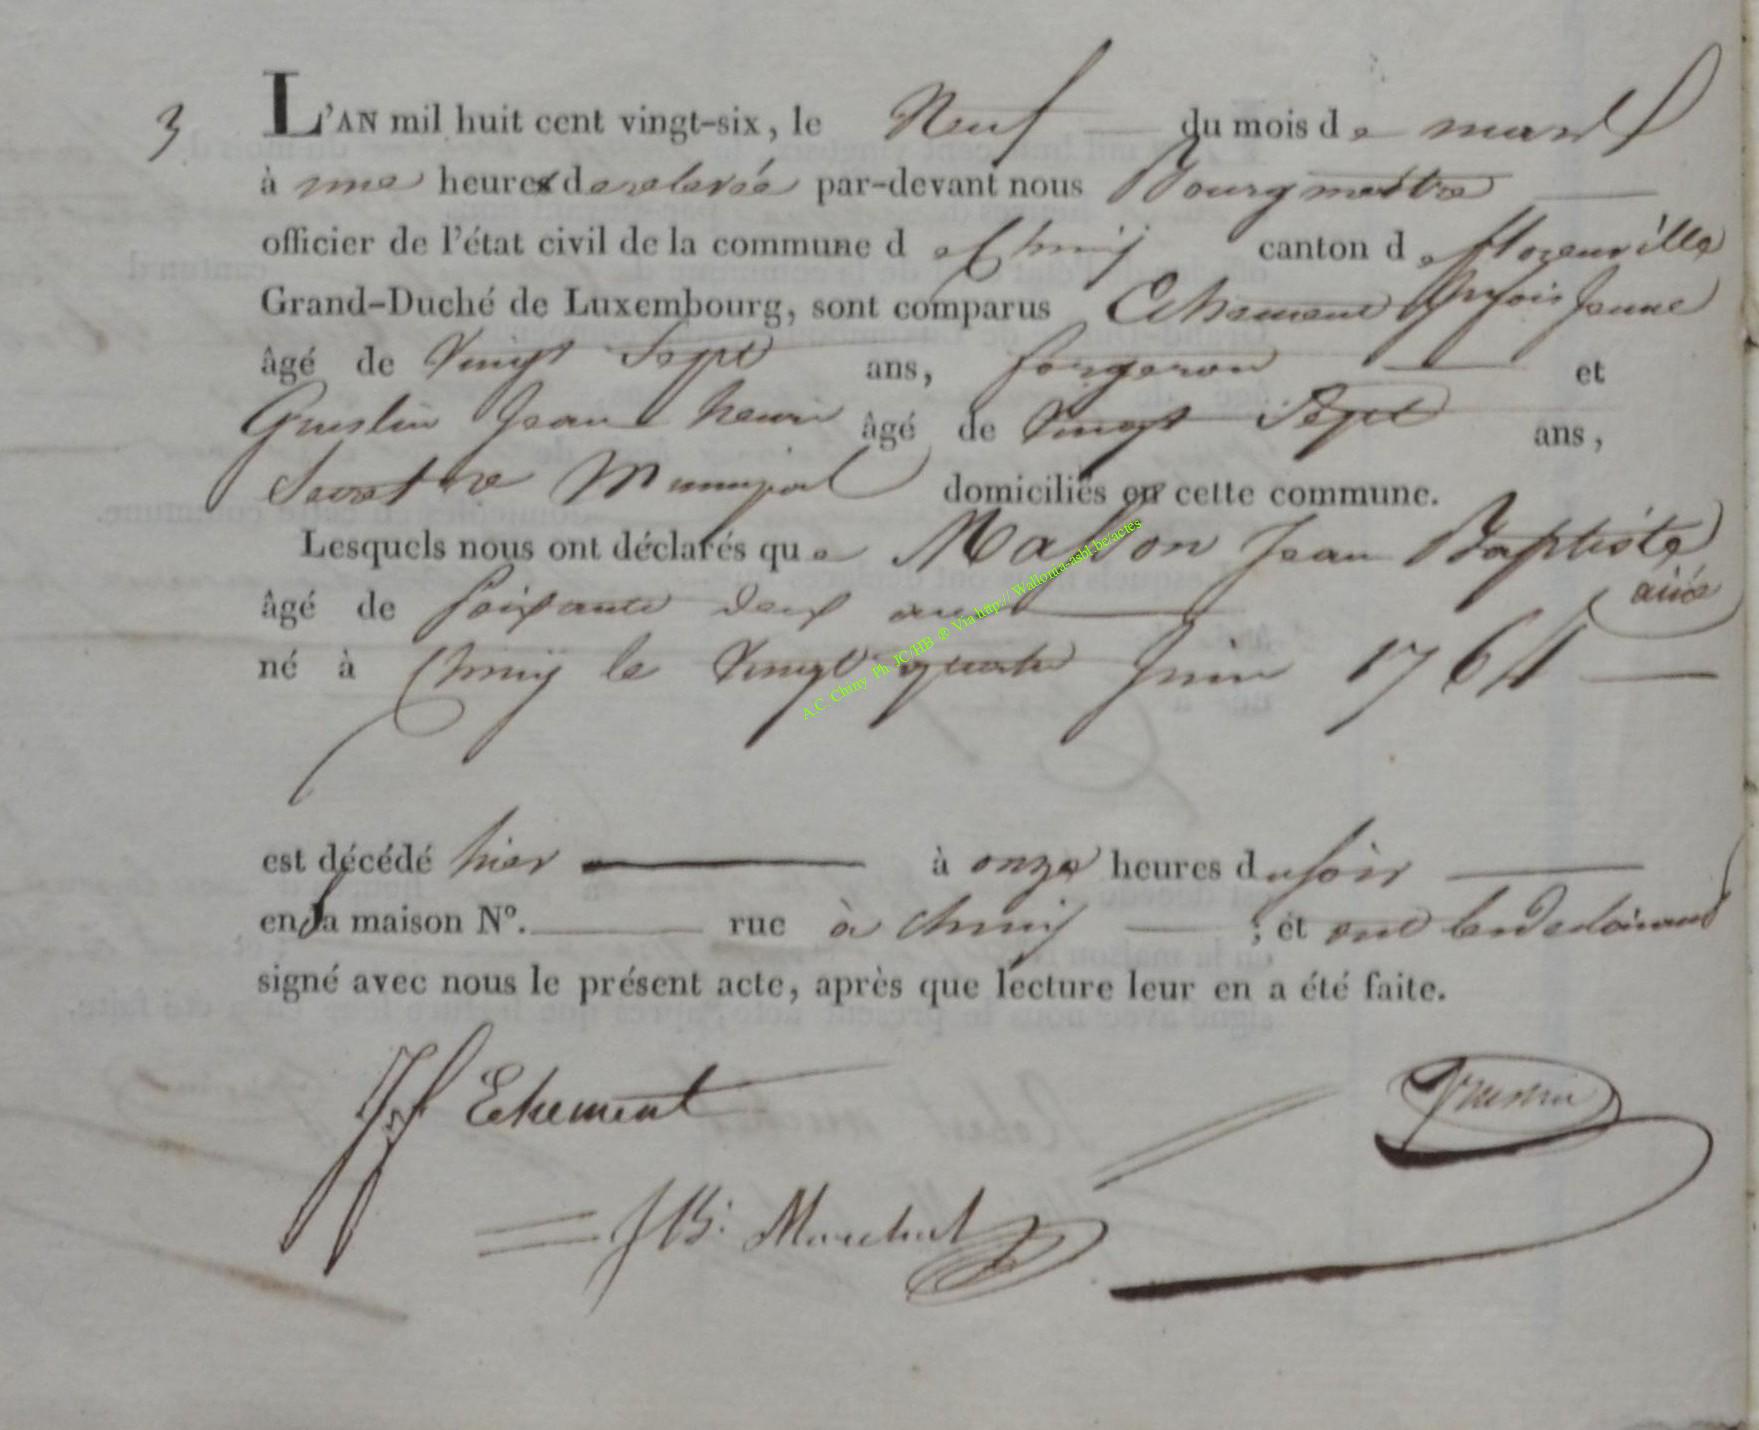 3 L'AN mil huit cent vingt-six, le Neuf du mois de mars
à une heure de relevée par-devant nous Bourgmestre
officier de l'état civil de la commune d e Chiny canton d e florenville
Grand-Duché de Luxembourg, sont comparus Echement Jeune
âgé de Vingt Sept ans, forgeron et
Jean henri âgé de Vingt Sept ans,
Municipal domiciliés en cette commune.
Lesquels nous ont déclarés que Masson Jean Baptiste
ainé
âgé de soixante deux ans
né à Chiny le Vingt quatre Juin 1764
est décédé hier à onze heures du soir
en la maison N°. rue à Chiny ; et ont les déclarants
signé avec nous le présent acte, après que lecture leur en a été faite.
Echement
JB: Marchal
A.C. Chiny Ph JC/HB ® Via http://Wallonia-asbl.be/actes